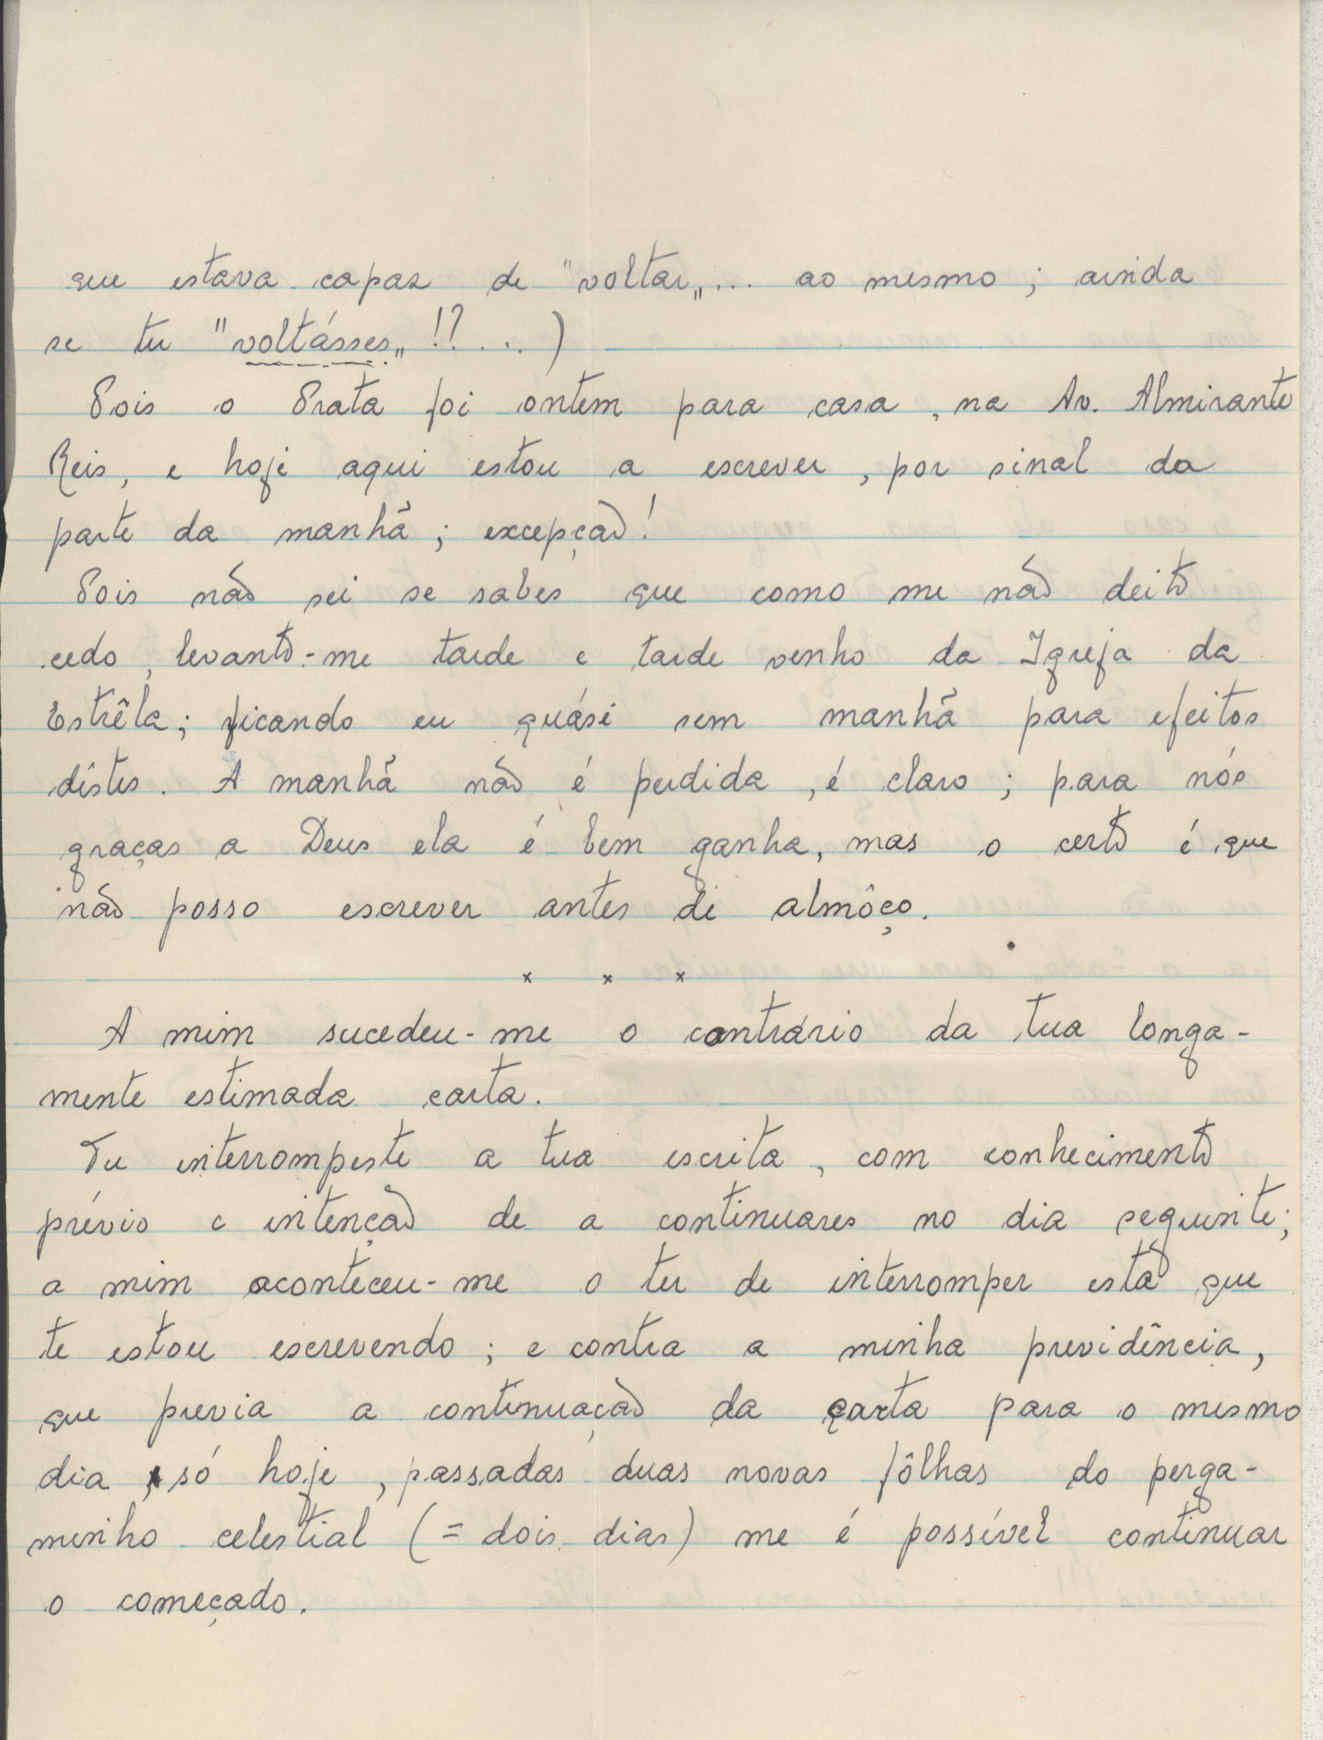 que estava capaz de "voltar„... ao mesmo; ainda
se tu "voltásses„ !?...)
Pois o Prata foi ontem para casa, na Av. Almirante
Reis, e hoje aqui estou a escrever, por sinal da
parte da manhã; excepção!
Pois não sei se sabes que como me não deito
cedo, levanto-me tarde e tarde venho da Igreja da
Estrêla; ficando eu quási sem manhã para efeitos
dêstes. A manhã não é perdida, é claro; para nós
graças a Deus ela é bem ganha, mas o certo é que
não posso escrever antes de almôço.
x x x
A mim sucedeu-me o contrário da tua longa-
mente estimada carta.
Tu interrompeste a tua escrita, com conhecimento
prévio e intenção de a continuares no dia seguinte;
a mim aconteceu-me o ter de interromper esta que
te estou escrevendo; e contra a minha previdência,
que previa a continuação da carta para o mesmo
dia, só hoje, passadas duas novas fôlhas do perga-
minho celestial (= dois dias) me é possível continuar
o começado.